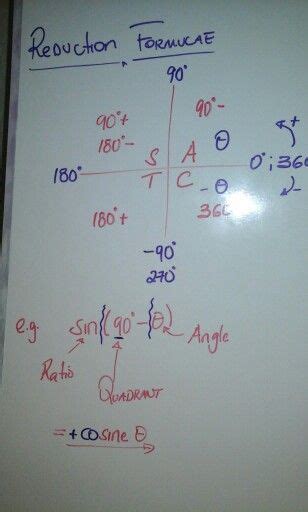 REDUCTION FORMULAE
90°
90°+ 90°-
180°- S A θ +
180° 0° ; 360
T C - θ -
180°+ 360
-90°
270°
e.g. sin{(90°-{θ)
Angle
Ratio
QUADRANT
= +cosine θ